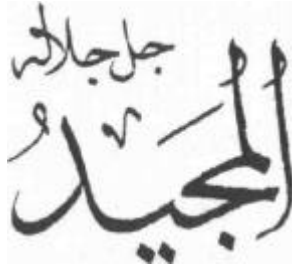 جل جلاله
المَجِيدُ